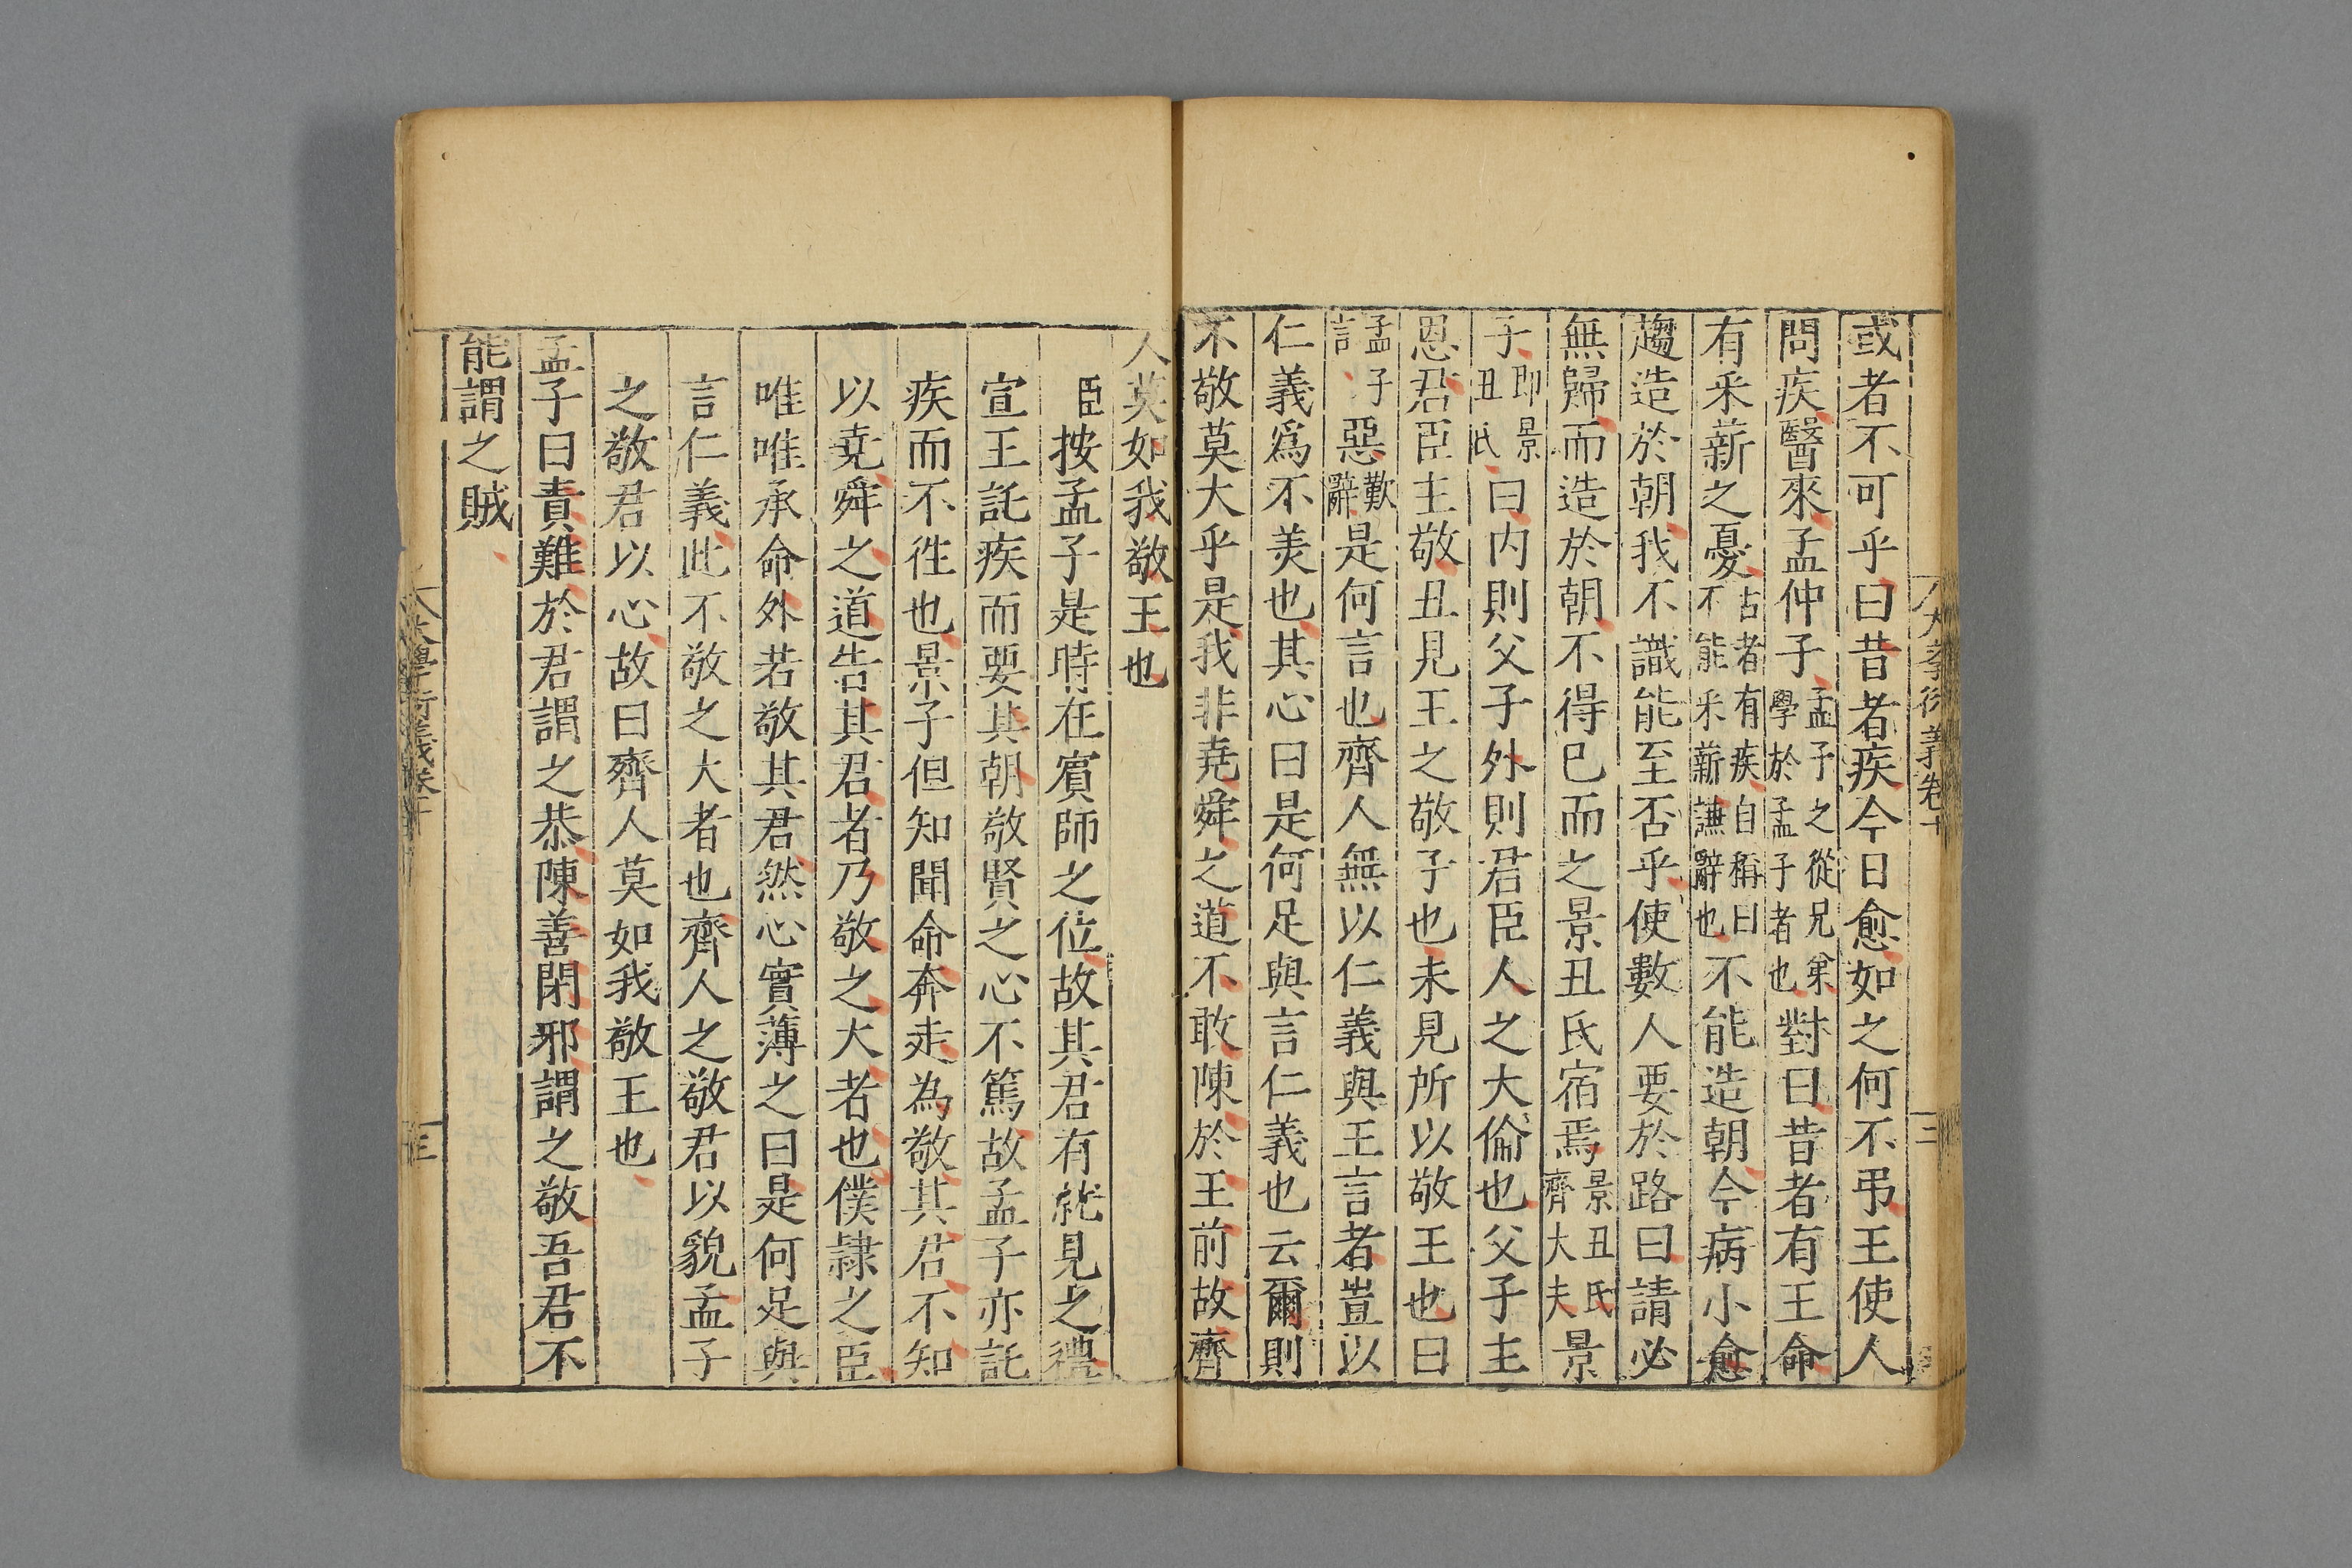 或者不可乎曰昔者疾今日愈如之何不弔王使人
問疾醫來孟仲子孟子之從兄弟學於孟子者也對曰昔者有王命
有采薪之憂古者有疾自稱曰不能采薪謙辭也不能造朝今病小愈
趨造於朝我不識能至否乎使數人要於路曰請必
無歸而造於朝不得已而之景丑氏宿焉景丑氏齊大夫景
子即景丑氏曰内則父子外則君臣人之大倫也父子主
恩君臣主敬丑見王之敬子也未見所以敬王也曰
孟子言惡歎辭是何言也齊人無以仁義與王言者豈以
仁義爲不美也其心曰是何足與言仁義也云爾則
不敬莫大乎是我非堯舜之道不敢陳於王前故齊
人莫如我敬王也
臣按孟子是時在賓師之位故其君有就見之禮
宣王託疾而要其朝敬賢之心不篤故孟子亦託
疾而不徃也景子但知聞命奔走為敬其君不知
以堯舜之道告其君者乃敬之大者也僕隷之臣
唯唯承命外若敬其君然心實薄之曰是何足與
言仁義此不敬之大者也齊人之敬君以貌孟子
之敬君以心故曰齊人莫如我敬王也
孟子曰責難於君謂之恭陳善閉邪謂之敬吾君不
能謂之賊
大學衍義卷十
三